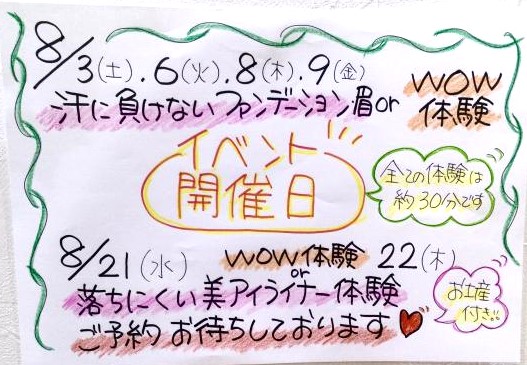 8/3(土).6(火).8(木).9(金)
汗に負けないファンデーション眉or
WOW
体験
イベント
開催日
全ての体験は
約30分です
8/21(水) WOW体験 22(木)
or
落ちにくい美アイライナー体験
ご予約お待ちしております
お土産
付き!!